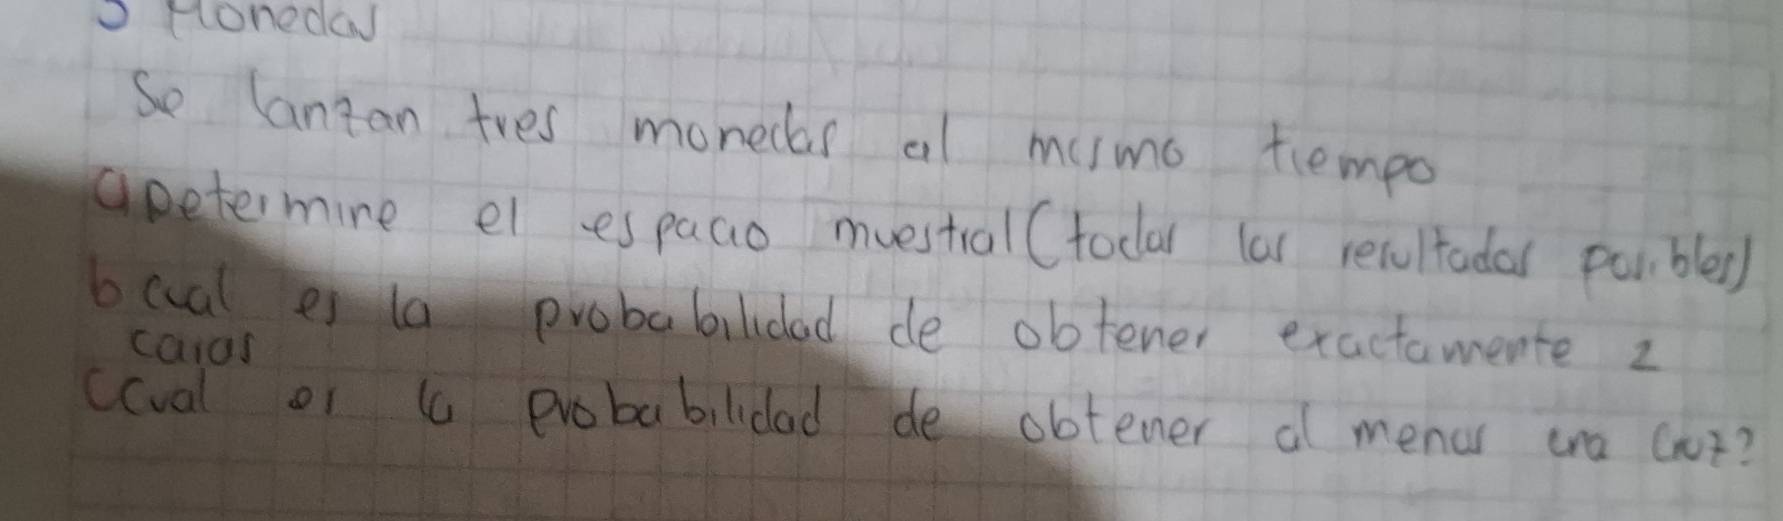 3 Monedas
Se lanzan tres monedas al mismo tiempo
a Determine el espacio muestral (todas las resultados posibles)
b cual es la probabilidad de obtener exactamente 2
caras
c cual es la probabilidad de obtener al menos una cruz?